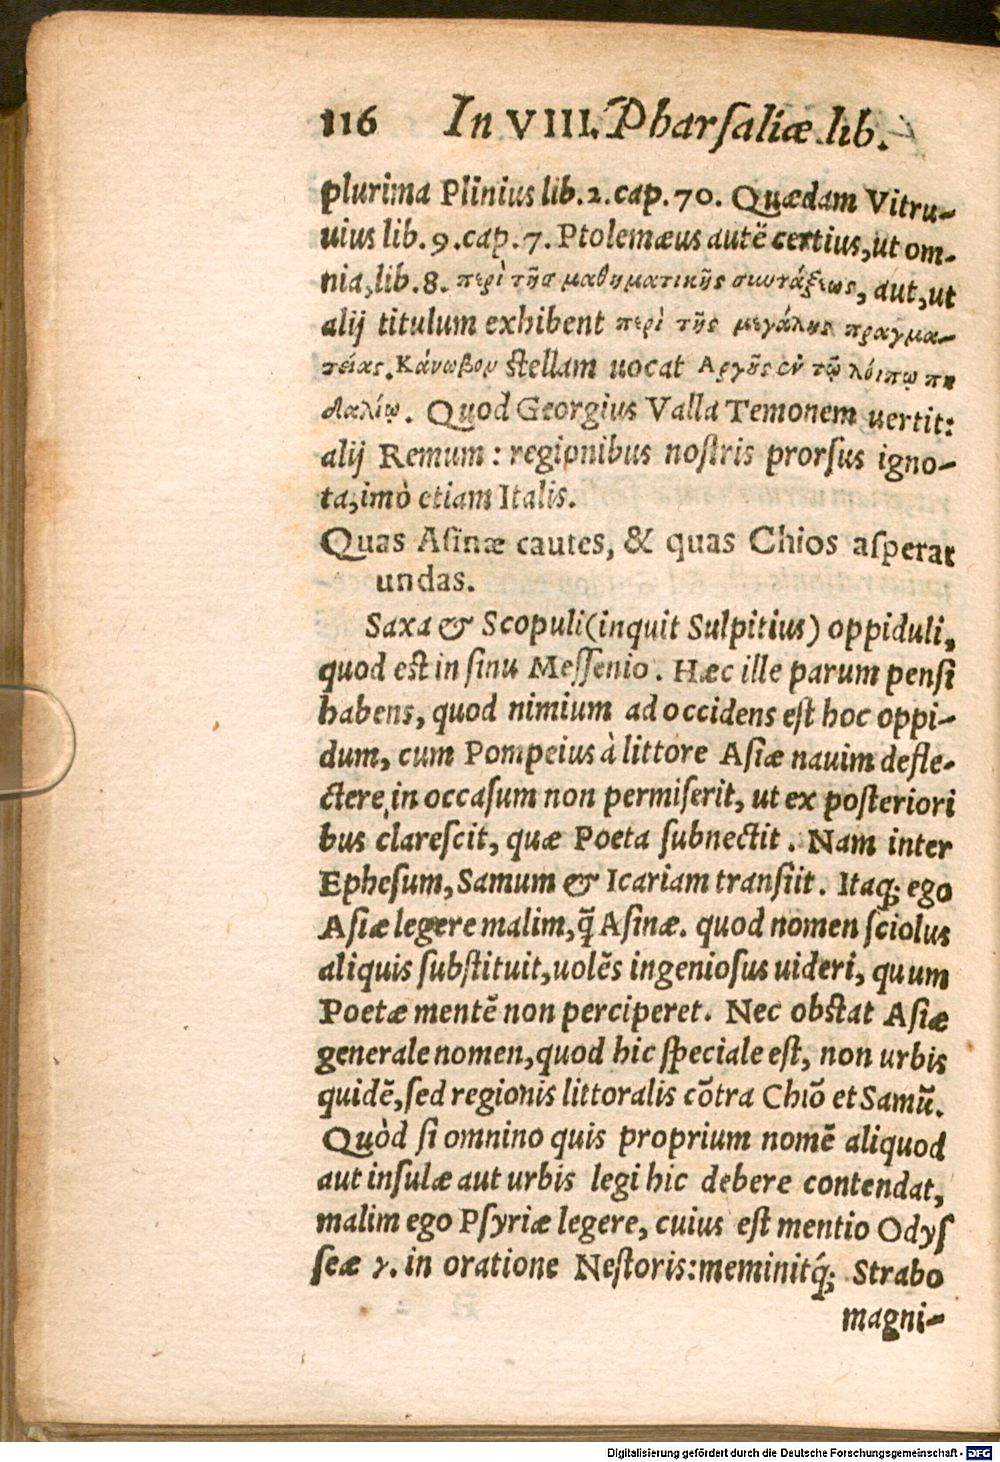 116 In VIII. Pharſaliæ lib.
plurima Plinius lib. 2. cap. 70. Quædam Vitru-
uius lib. 9. cap. 7. Ptolemæus autē certius, ut om-
nia, lib. 8. περὶ τῆσ μαθηματικῆς σιωτάξεως, aut, ut
alij titulum exhibent περὶ τῆς μεγάλης πραγμα-
τείας. Κάνωβον ſtellam uocat Αργοῦς ἐν τῷ λόιπῳ πη
δαλίῳ. Quod Georgius Valla Temonem uertit:
alij Remum: regionibus noſtris prorſus igno-
ta, imò etiam Italis.
Quas Aſinæ cautes, & quas Chios aſperat
undas.
Saxa & Scopuli (inquit Sulpitius) oppiduli,
quod eſt in ſinu Meſſenio. Hæc ille parum penſi
habens, quod nimium ad occidens eſt hoc oppi-
dum, cum Pompeius à littore Aſiæ nauim defle-
ctere in occaſum non permiſerit, ut ex poſteriori
bus clareſcit, quæ Poeta ſubnectit. Nam inter
Epheſum, Samum & Icariam tranſiit. Itaq; ego
Aſiæ legere malim, q̃ Aſinæ. quod nomen ſciolus
aliquis ſubſtituit, uolēs ingenioſus uideri, quum
Poetæ mentē non perciperet. Nec obſtat Aſiæ
generale nomen, quod hic ſpeciale eſt, non urbis
quidē, ſed regionis littoralis cōtra Chiō et Samū.
Quòd ſi omnino quis proprium nomē aliquod
aut inſulæ aut urbis legi hic debere contendat,
malim ego Pſyriæ legere, cuius eſt mentio Odyſ
ſeæ γ. in oratione Neſtoris: meminitq́; Strabo
magni-
Digitalisierung gefördert durch die Deutsche Forschungsgemeinschaft - DFG